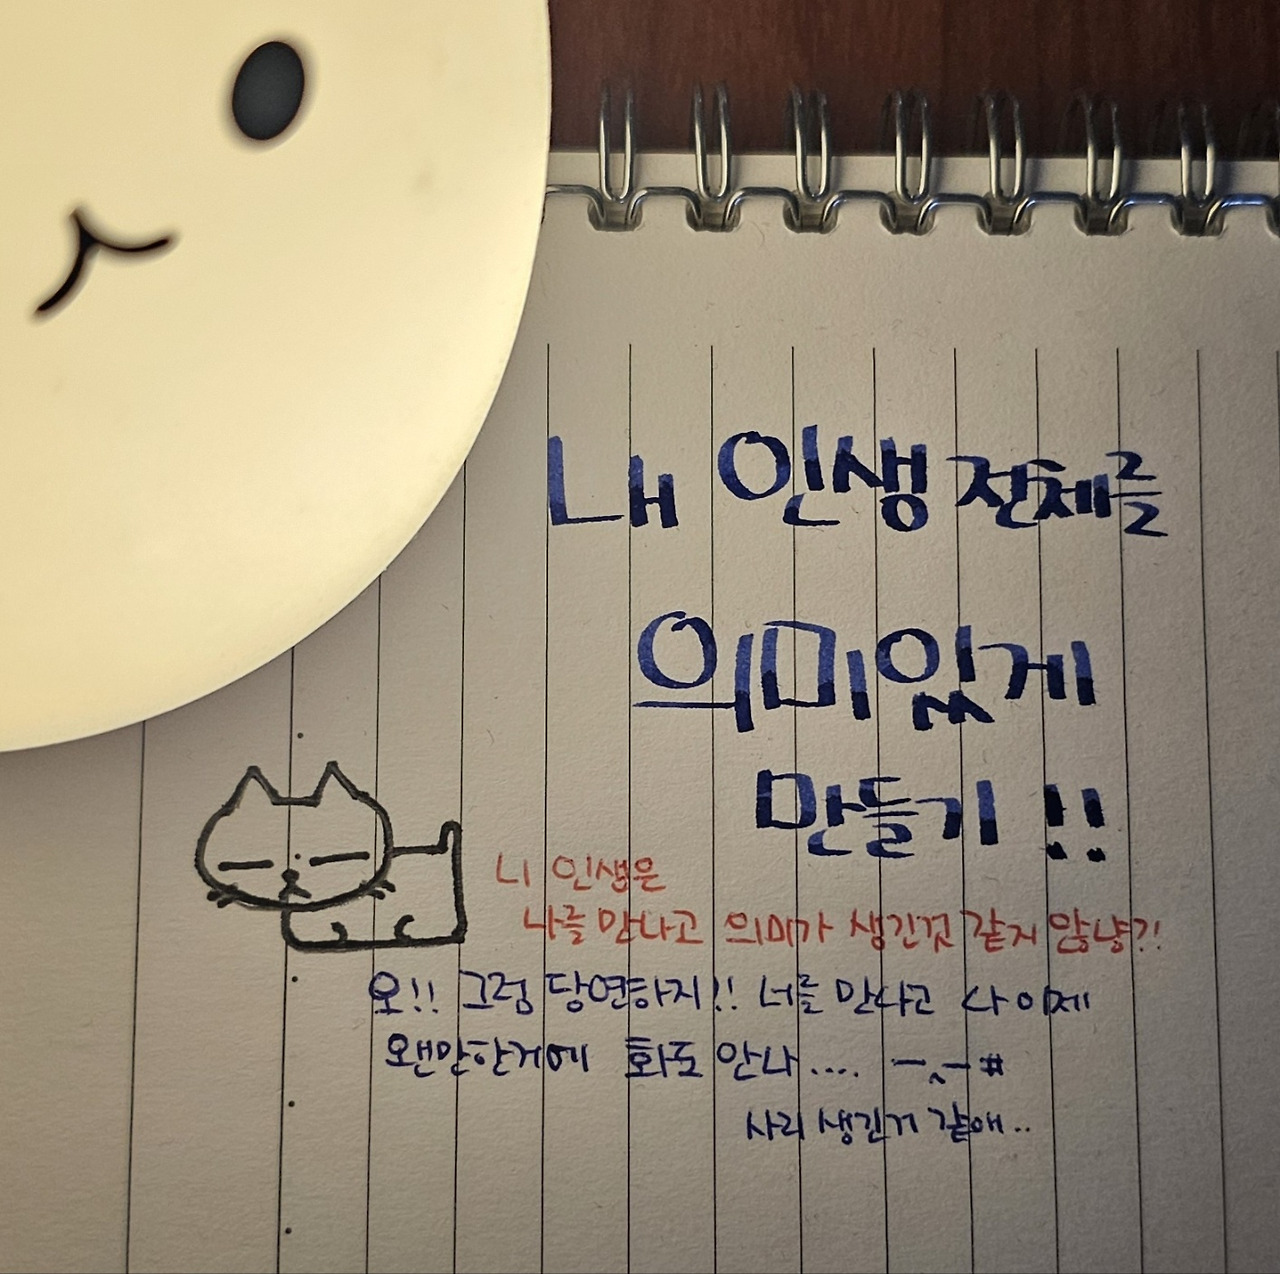 내 인생 전체를
의미있게
만들기 !!
니 인생은
나를 만나고 의미가 생긴것 같지 않냥?!
오!! 그럼 당연하지!! 너를 만나고 나 이제
왠만한거에 화도 안나.... -.-#
사리 생긴거 같애..